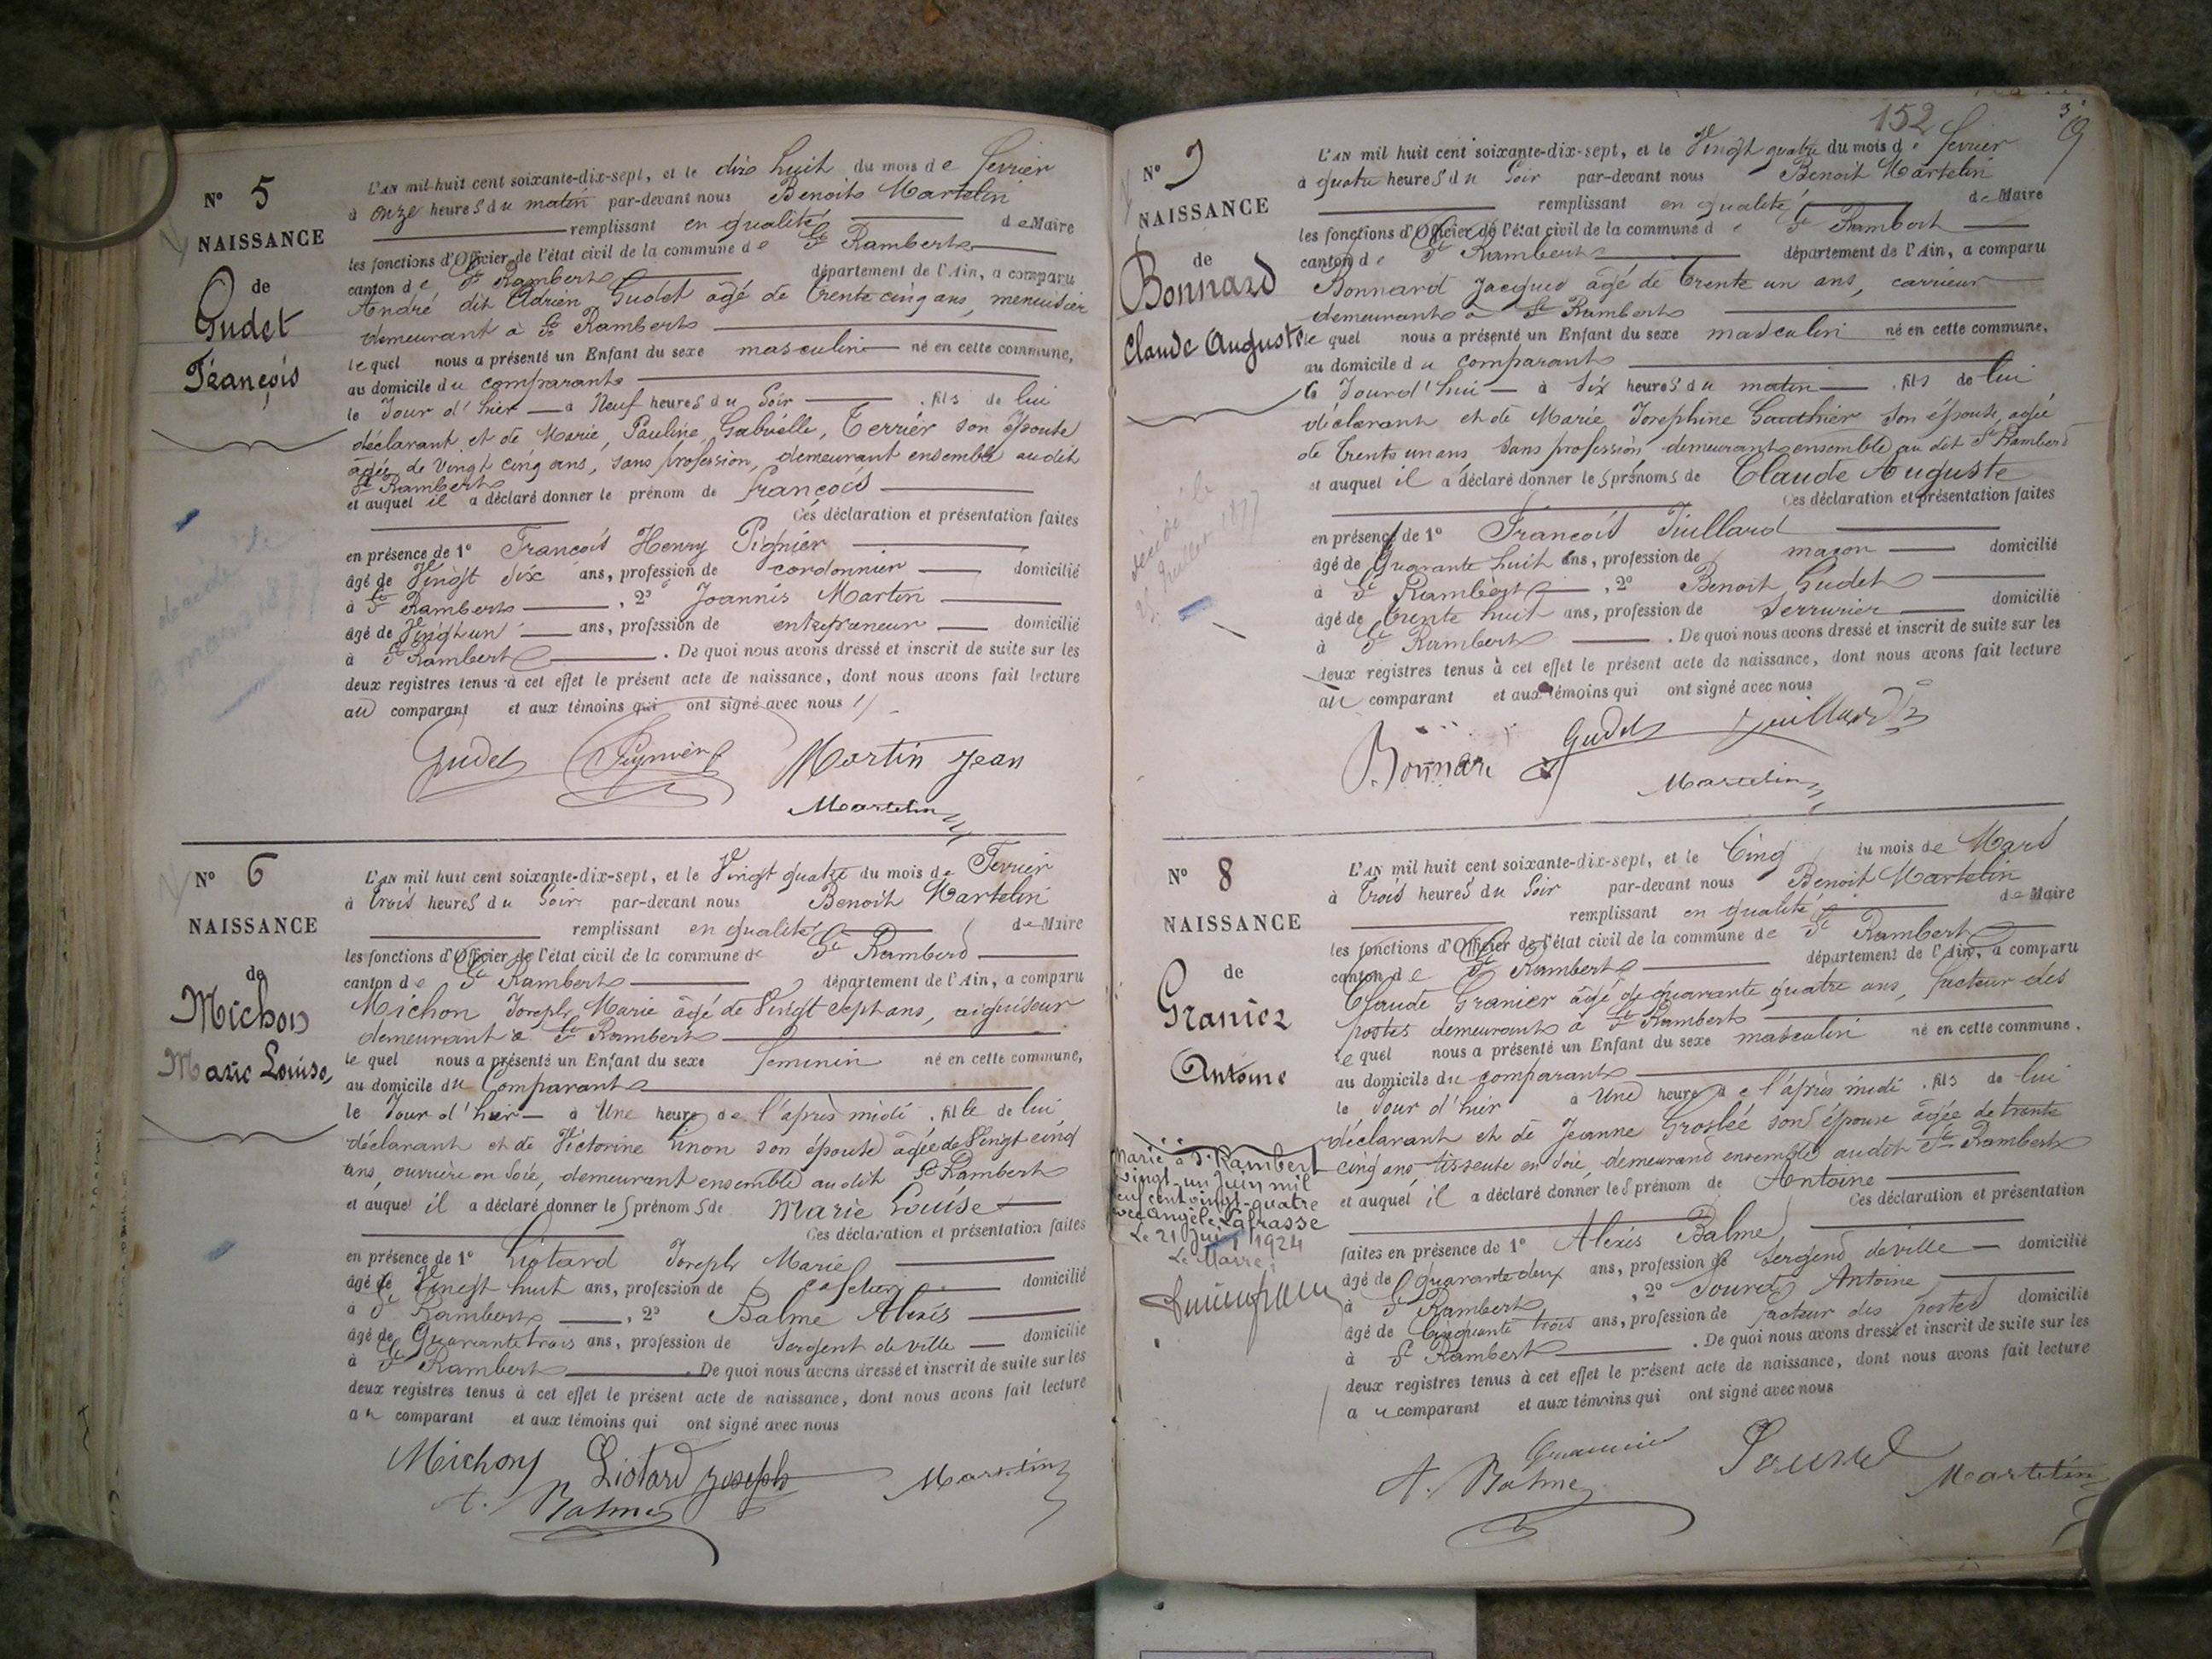 N° 5
NAISSANCE
de
Gudet
François
L'AN mil huit cent soixante-dix-sept, et le dix huit du mois de fevrier
à onze heures du matin par-devant nous Benoit Martelin
remplissant en qualité de Maire
les fonctions d'Officier de l'état civil de la commune de St Rambert
canton de St Rambert département de l'Ain, a comparu
André dit Adrien Gudet agé de trente cinq ans, menuisier
demeurant à St Rambert
lequel nous a présenté un Enfant du sexe masculin né en cette commune,
au domicile du comparant
le Jour d'hier à Neuf heures du Soir fils de lui
déclarant et de Marie, Pauline, Gabrielle, Terrier son épouse
agée de Vingt cinq ans, sans profession, demeurant ensemble au dit
St Rambert
et auquel il a déclaré donner le prénom de françois
Ces déclaration et présentation faites
en présence de 1° François Henry Pignier
âgé de Vingt six ans, profession de cordonnier domicilié
à St Rambert, 2° Joannis Martin
âgé de Vingt un ans, profession de entrepreneur domicilié
à St Rambert. De quoi nous avons dressé et inscrit de suite sur les
deux registres tenus à cet effet le présent acte de naissance, dont nous avons fait lecture
au comparant et aux témoins qui ont signé avec nous
Gudet Martin Jean
Martelin
N° 6
NAISSANCE
de
Michon
Marie Louise
L'AN mil huit cent soixante-dix-sept, et le Vingt quatre du mois de Fevrier
à trois heures du Soir par-devant nous Benoit Martelin
remplissant en qualité de Maire
les fonctions d'Officier de l'état civil de la commune de St Rambert
canton de St Rambert département de l'Ain, a comparu
Michon Joseph Marie âgé de Vingt sept ans, aiguiseur
demeurant à St Rambert
lequel nous a présenté un Enfant du sexe feminin né en cette commune,
au domicile du Comparant
le Jour d'hier à Une heure de l'après midi fille de lui
déclarant et de Victorine son épouse agée de Vingt cinq
ans, ouvrière en Soie, demeurant ensemble au dit St Rambert
et auquel il a déclaré donner les prénoms de Marie Louise
Ces déclaration et présentation faites
en présence de 1° Liotard Joseph Marie
âgé de Vingt huit ans, profession de cafetier domicilié
à St Rambert, 2° Balme Alexis
âgé de Quarante trois ans, profession de Sergent de ville domicilié
à St Rambert. De quoi nous avons dressé et inscrit de suite sur les
deux registres tenus à cet effet le présent acte de naissance, dont nous avons fait lecture
au comparant et aux témoins qui ont signé avec nous
Michon Liotard Joseph Martelin
A. Balme
152
N° 7
NAISSANCE
de
Bonnard
Claude Auguste
décédé le
Juillet 1877
L'AN mil huit cent soixante-dix-sept, et le Vingt quatre du mois de fevrier
à quatre heures du Soir par-devant nous Benoit Martelin
remplissant en qualité de Maire
les fonctions d'Officier de l'état civil de la commune de St Rambert
canton de St Rambert département de l'Ain, a comparu
Bonnard Jacques âgé de trente un ans, carrieur
demeurant à St Rambert
lequel nous a présenté un Enfant du sexe masculin né en cette commune,
au domicile du comparant
le Jourd'hui à six heures du matin fils de lui
déclarant et de Marie Josephine Gauthier son épouse, agée
de trente un ans sans profession demeurant ensemble au dit St Rambert
et auquel il a déclaré donner les prénoms de Claude Auguste
Ces déclaration et présentation faites
en présence de 1° François Juillard
âgé de Quarante huit ans, profession de maçon domicilié
à St Rambert, 2° Benoit Gudet
âgé de trente huit ans, profession de Serrurier domicilié
à St Rambert. De quoi nous avons dressé et inscrit de suite sur les
deux registres tenus à cet effet le présent acte de naissance, dont nous avons fait lecture
au comparant et aux témoins qui ont signé avec nous
Bonnard Gudet Juillard
Martelin
N° 8
NAISSANCE
de
Granier
Antoine
Marié à St Rambert
vingt-un juin mil
neuf cent vingt-quatre
avec Angèle Lafrasse
Le 21 juin 1924
Le Maire,
L'AN mil huit cent soixante-dix-sept, et le Cinq du mois de Mars
à trois heures du Soir par-devant nous Benoit Martelin
remplissant en qualité de Maire
les fonctions d'Officier de l'état civil de la commune de St Rambert
canton de St Rambert département de l'Ain, a comparu
Claude Granier âgé de quarante quatre ans, facteur des
postes demeurant à St Rambert
lequel nous a présenté un Enfant du sexe masculin né en cette commune,
au domicile du comparant
le Jour d'hier à Une heure de l'après midi fils de lui
déclarant et de Jeanne Groslée son épouse âgée de trente
cinq ans tisseuse en soie, demeurant ensemble audit St Rambert
et auquel il a déclaré donner les prénom de Antoine
Ces déclaration et présentation
faites en présence de 1° Alexis Balme
âgé de quarante deux ans, profession de Sergent de ville domicilié
à St Rambert, 2° Antoine
âgé de Cinquante trois ans, profession de facteur des postes domicilié
à St Rambert. De quoi nous avons dressé et inscrit de suite sur les
deux registres tenus à cet effet le présent acte de naissance, dont nous avons fait lecture
au comparant et aux témoins qui ont signé avec nous
A. Balme Martelin